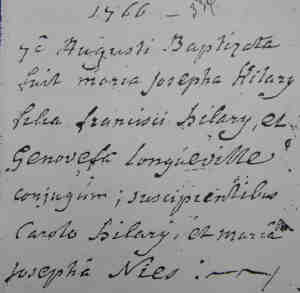 1766 -
7a Augusti Baptizata
fuit maria Josepha Hilary
filia francisci hilary, et
Genovefa Longueville
conjugum; suscipientibus
Carolo hilary, et maria
Josepha Nies :